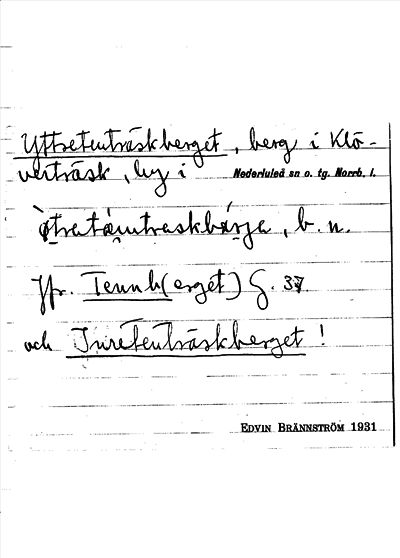 Yttretenträskberget, berg i Klö-
verträsk, by i Nederluleå sn o. tg. Norrb. l.
òtratæ̀mtraskbárjа, b. n.
Jfr. Tennb(erget) G. 37
och Inretenträskberget!
EDVIN BRÄNNSTRÖM 1931